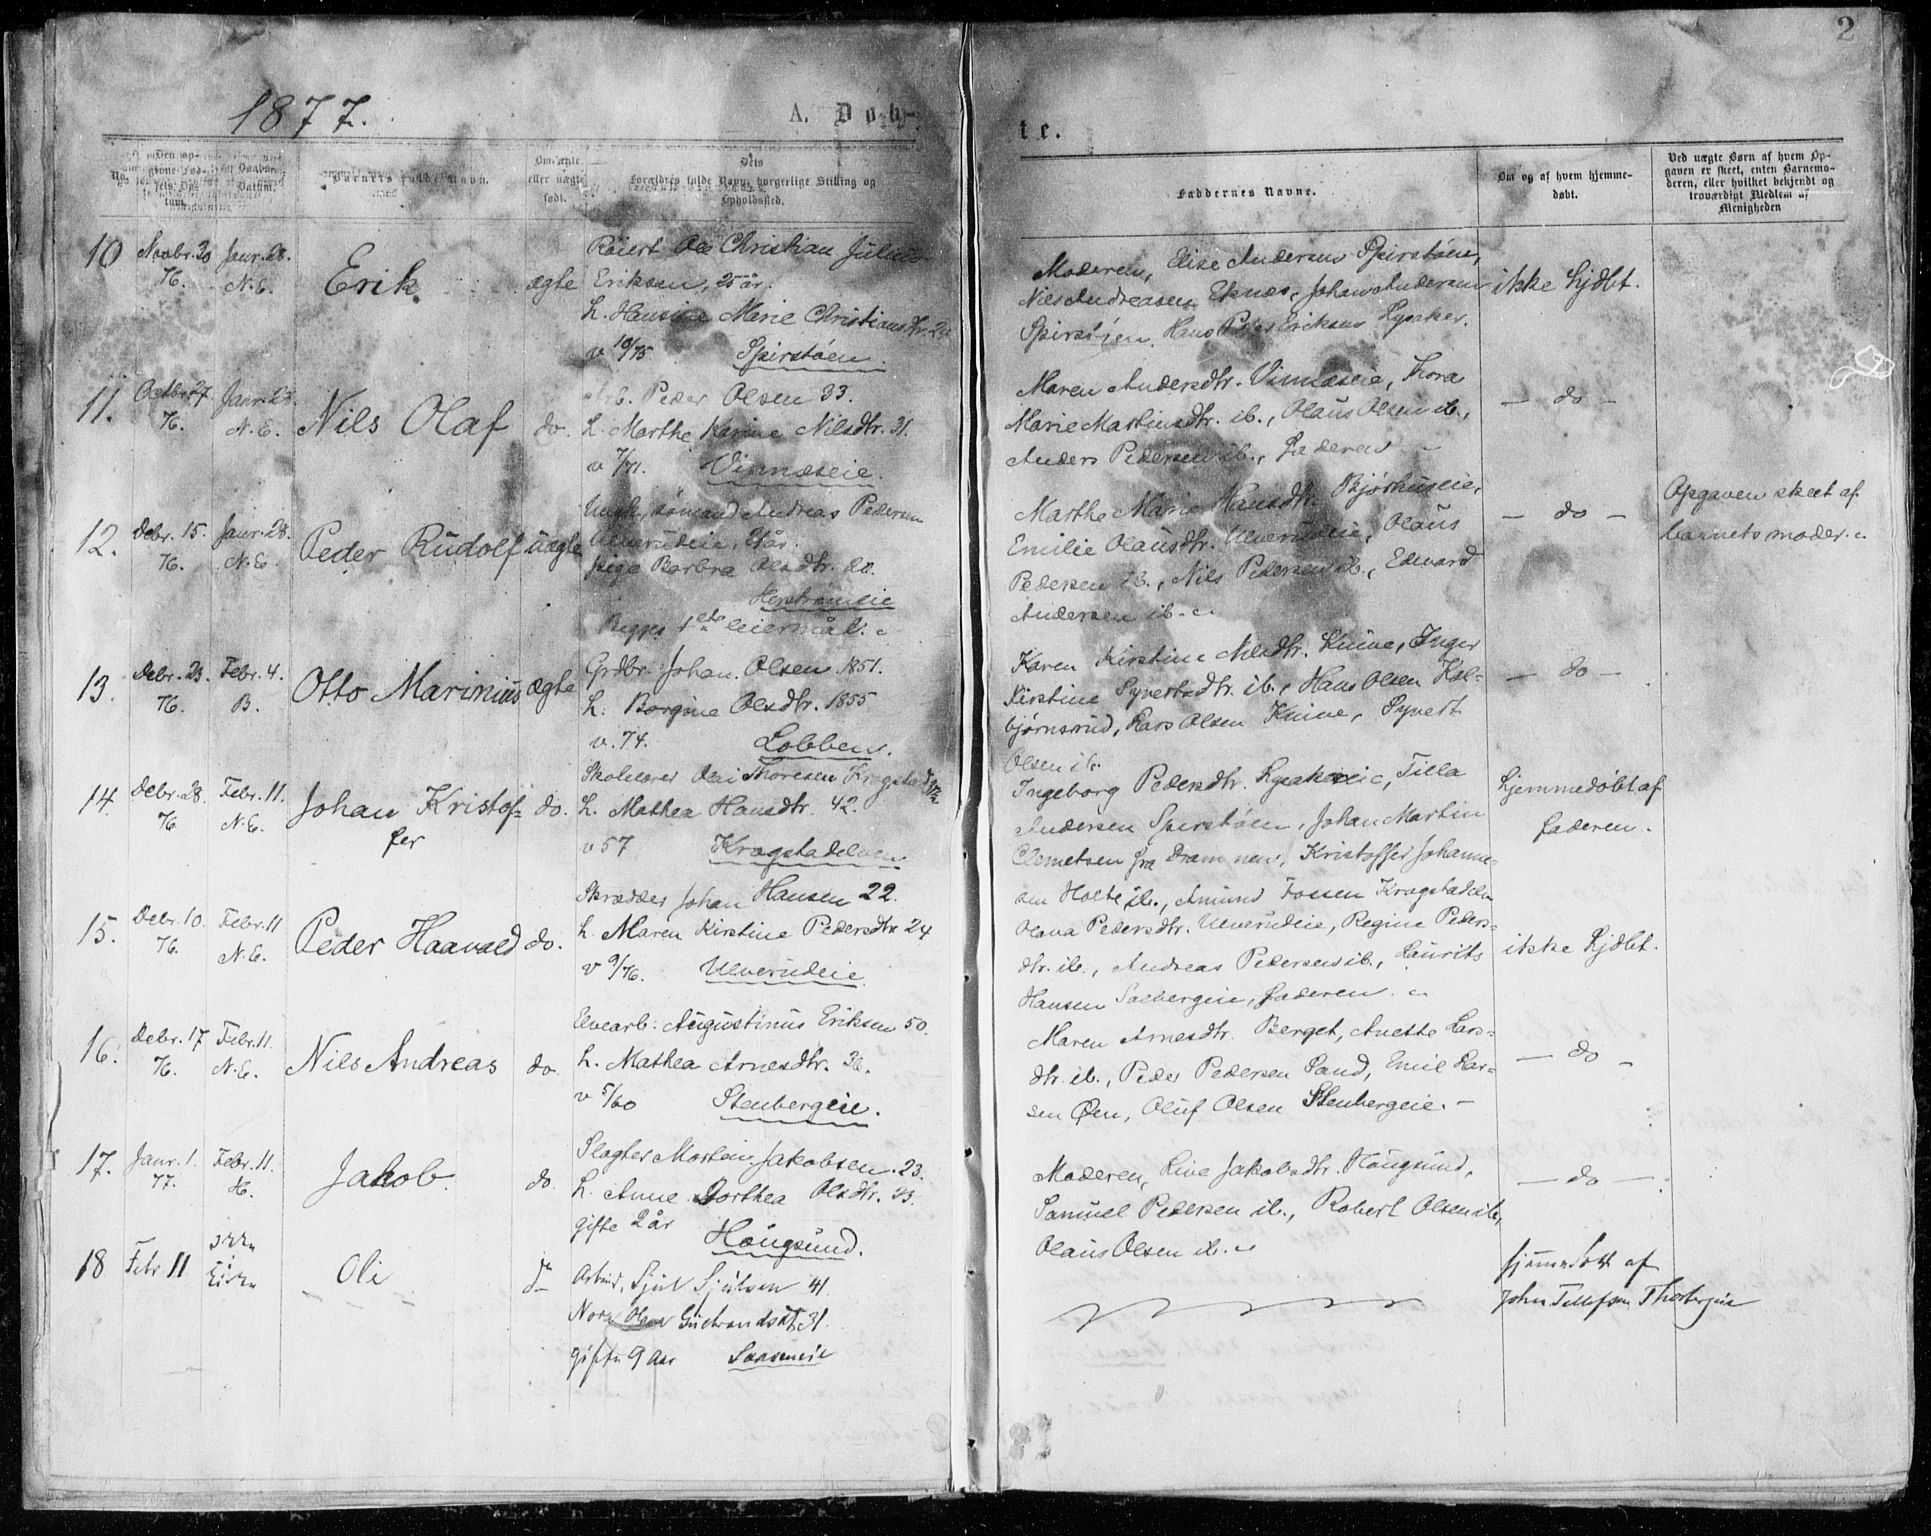 2
1877.
A. Døb-
te.
No.
Den op-
givne Fød-
sels Da-
tum.
Daabens
Datum.
Barnets fulde Navn.
Om ægte
eller uægte
født.
Dets
Forældres fulde Navn, borgerlige Stilling og
Opholdssted.
Faddernes Navne.
Om og af hvem hjemme-
døbt.
Ved uægte Børn af hvem Op-
gaven er skeet, enten Barnemo-
deren, eller hvilket bekjendt og
troværdigt Medlem af
Menigheden
10
Novbr. 20
76.
Janr. 28.
N.E.
Erik
ægte
Ole Christian Julius
Eriksen, 25 år.
h. Hansine Marie Christiansdtr. 24
v 10/75 Spirstøen.
Moderen, Elise Andersen Spirstøen,
Nils Andreasen Eknes, Johan Andersen
Spirstøen, Hans Peter Eriksen Lysaker.
ikke hjdbt.
11.
Octbr. 27
76.
Janr. 28.
N.E.
Nils Olaf
do.
Arb. Peder Olsen 33.
h. Marthe Karine Nilsdtr. 31.
v 7/71. Vinnæseie.
Maren Andersdtr. Vinnæseie, Thora
Marie Martinsdtr. ib., Olaus Olsen ib.,
Anders Pedersen ib., Faderen
— do —
12.
Debr. 15.
76.
Janr. 28.
N.E.
Peder Rudolf
uægte
Ungk., sømand Andreas Pedersen
Ulverudeie, 21 år.
pige Barbra Olsdtr. 20.
Herstrømeie
Begges 1ste leiermål.
Marthe Marie Hansdtr. Bjørhuseie,
Emilie Olausdtr. Ulverudeie, Olaus
Pedersen ib., Nils Pedersen ib., Edvard
Andersen ib.
— do —
Opgaven skeet af
barnets moder.
13.
Debr. 23.
76.
Febr. 4.
B.
Otto Marinius
ægte
Grdbr. Johan Olsen 1851.
h. Borgine Olsdtr. 1855
v. 74. Lobben.
Karen Kirstine Nilsdtr. Knive, Inger
Kirstine Syvertsdtr. ib., Hans Olsen Kol-
bjørnsrud, Lars Olsen Knive, Syvert
Olsen ib.
— do —
14.
Debr. 28.
76
Febr. 11.
N.E.
Johan Kristof-
fer
do.
Skolelærer Oluf Thoresen Krogstad
h. Mathea Hansdtr. 42.
v 57 Krogstadelven
Ingeborg Pedersdtr. Lysakereie, Tilla
Andersen Spirstøen, Johan Martin
Clemetsen fra Drammen, Kristoffer Johanne-
sen Holte ib., Amund Fossen Krogstadelv
hjemmedøbt af
faderen.
15.
Debr. 10.
76.
Febr. 11
N.E.
Peder Haavald
do.
Skrædder Johan Hansen 22.
h. Maren Kirstine Pedersdtr 24
v 9/76. Ulverudeie
Olava Pedersdtr. Ulverudeie, Regine Peders-
dtr. ib., Andreas Pedersen ib., Laurits
Hansen Solbergeie, faderen.
ikke hjdbt.
16.
Debr. 17
76.
Febr. 11.
N.E.
Nils Andreas
do.
Elvearb: Augustinus Eriksen 50.
h. Mathea Arnesdtr. 36.
v 5/60 Stenbergeie.
Maren Arnesdtr. Berget, Anette Lars-
dtr. ib., Peder Pedersen Sand, Emil Lar-
sen Øen, Oluf Olsen Stenbergeie.
— do —
17.
Janr. 1.
77.
Febr. 11.
H.
Jakob
do.
Slagter Morten Jakobsen. 23.
h. Anne Dorthea Olsdtr. 23.
gifte 2 år Hougsund.
Moderen, Live Jakobsdtr. Hougsund,
Samuel Pedersen ib., Robert Olsen ib,
Olaus Olsen ib.
— do —
18
Febr 11
Oli
do
Arbeid. Sjul Sjulsen 41.
Olava Gudbrandsdt 31.
gifte 9 Aar
hjemmedøbt af
John Tellefsen Thorbergeie